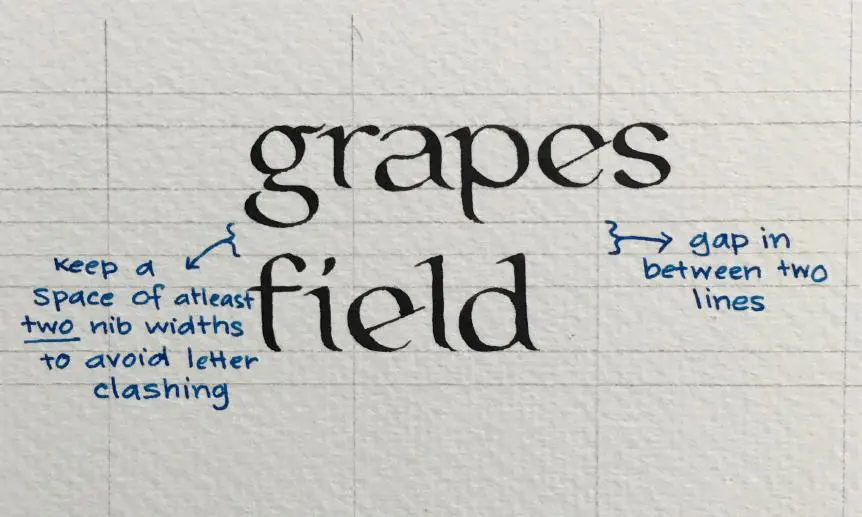 grapes
field
keep a
space of atleast
two nib widths
to avoid letter
clashing
gap in
between two
lines